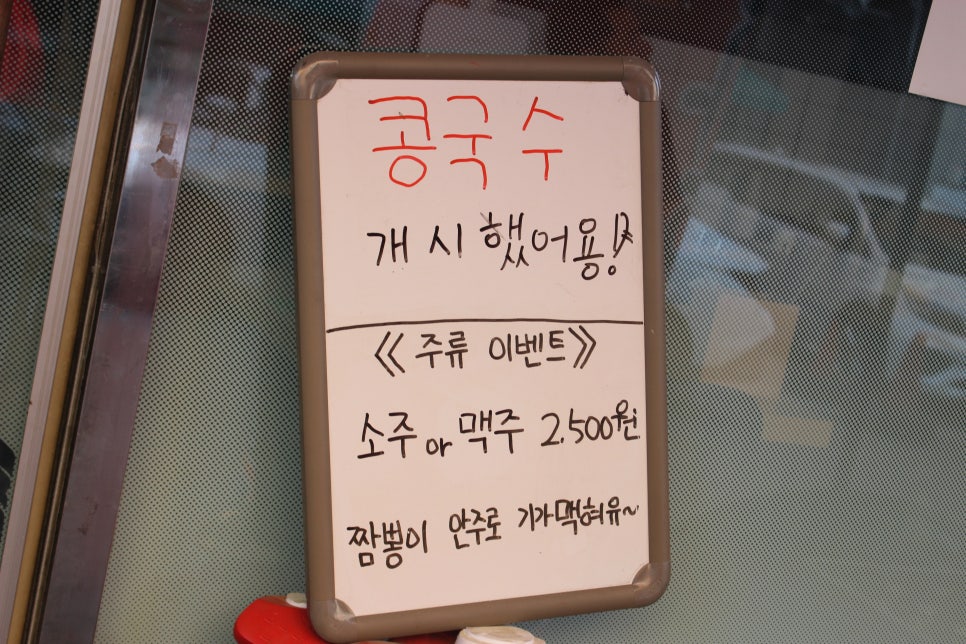 콩국수
개시했어용!
《주류 이벤트》
소주 or 맥주 2,500원
짬뽕이 안주로 기가맥혀유~